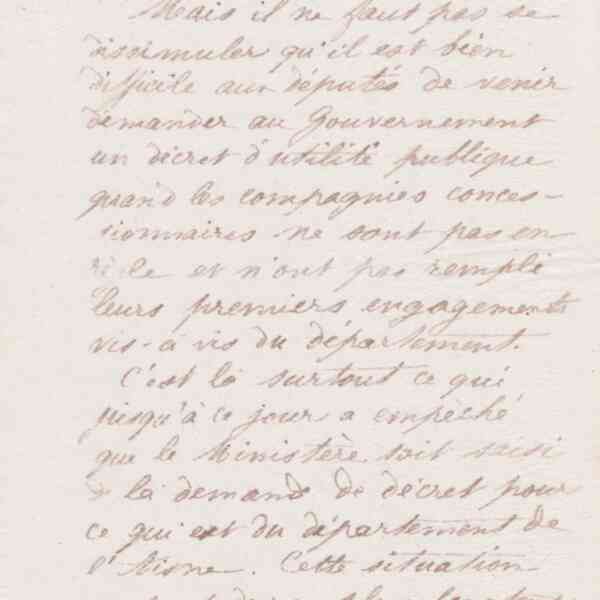 Mais il ne faut pas se
dissimuler qu'il est bien
difficile aux députés de venir
demander au Gouvernement
un décret d'utilité publique
quand les compagnies conces-
sionnaires ne sont pas en
règle et n'ont pas rempli
leurs premiers engagements
vis-à vis du département.
C'est là surtout ce qui
jusqu'à ce jour a empêché
que le Ministère soit saisi
de la demande de décret pour
ce qui est du département de
l'Aisne. Cette situation